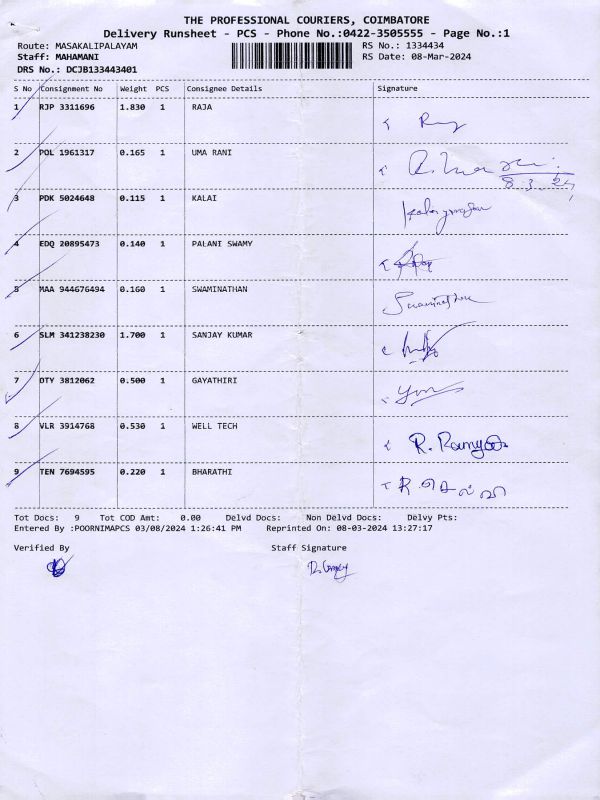 THE PROFESSIONAL COURIERS, COIMBATORE
Delivery Runsheet - PCS - Phone No.:0422-3505555 - Page No.:1
Route: MASAKALIPALAYAM RS No.: 1334434
Staff: MAHAMANI RS Date: 08-Mar-2024
DRS No.: DCJB133443401
S No Consignment No Weight PCS Consignee Details Signature
1 RJP 3311696 1.830 1 RAJA
2 POL 1961317 0.165 1 UMA RANI
8.3.24
3 PDK 5024648 0.115 1 KALAI
4 EDQ 20895473 0.140 1 PALANI SWAMY
5 MAA 944676494 0.160 1 SWAMINATHAN Swaminathan
6 SLM 341238230 1.700 1 SANJAY KUMAR
7 OTY 3812062 0.500 1 GAYATHIRI
8 VLR 3914768 0.530 1 WELL TECH R. Ramya
9 TEN 7694595 0.220 1 BHARATHI
Tot Docs: 9 Tot COD Amt: 0.00 Delvd Docs: Non Delvd Docs: Delvy Pts:
Entered By :POORNIMAPCS 03/08/2024 1:26:41 PM Reprinted On: 08-03-2024 13:27:17
Verified By Staff Signature